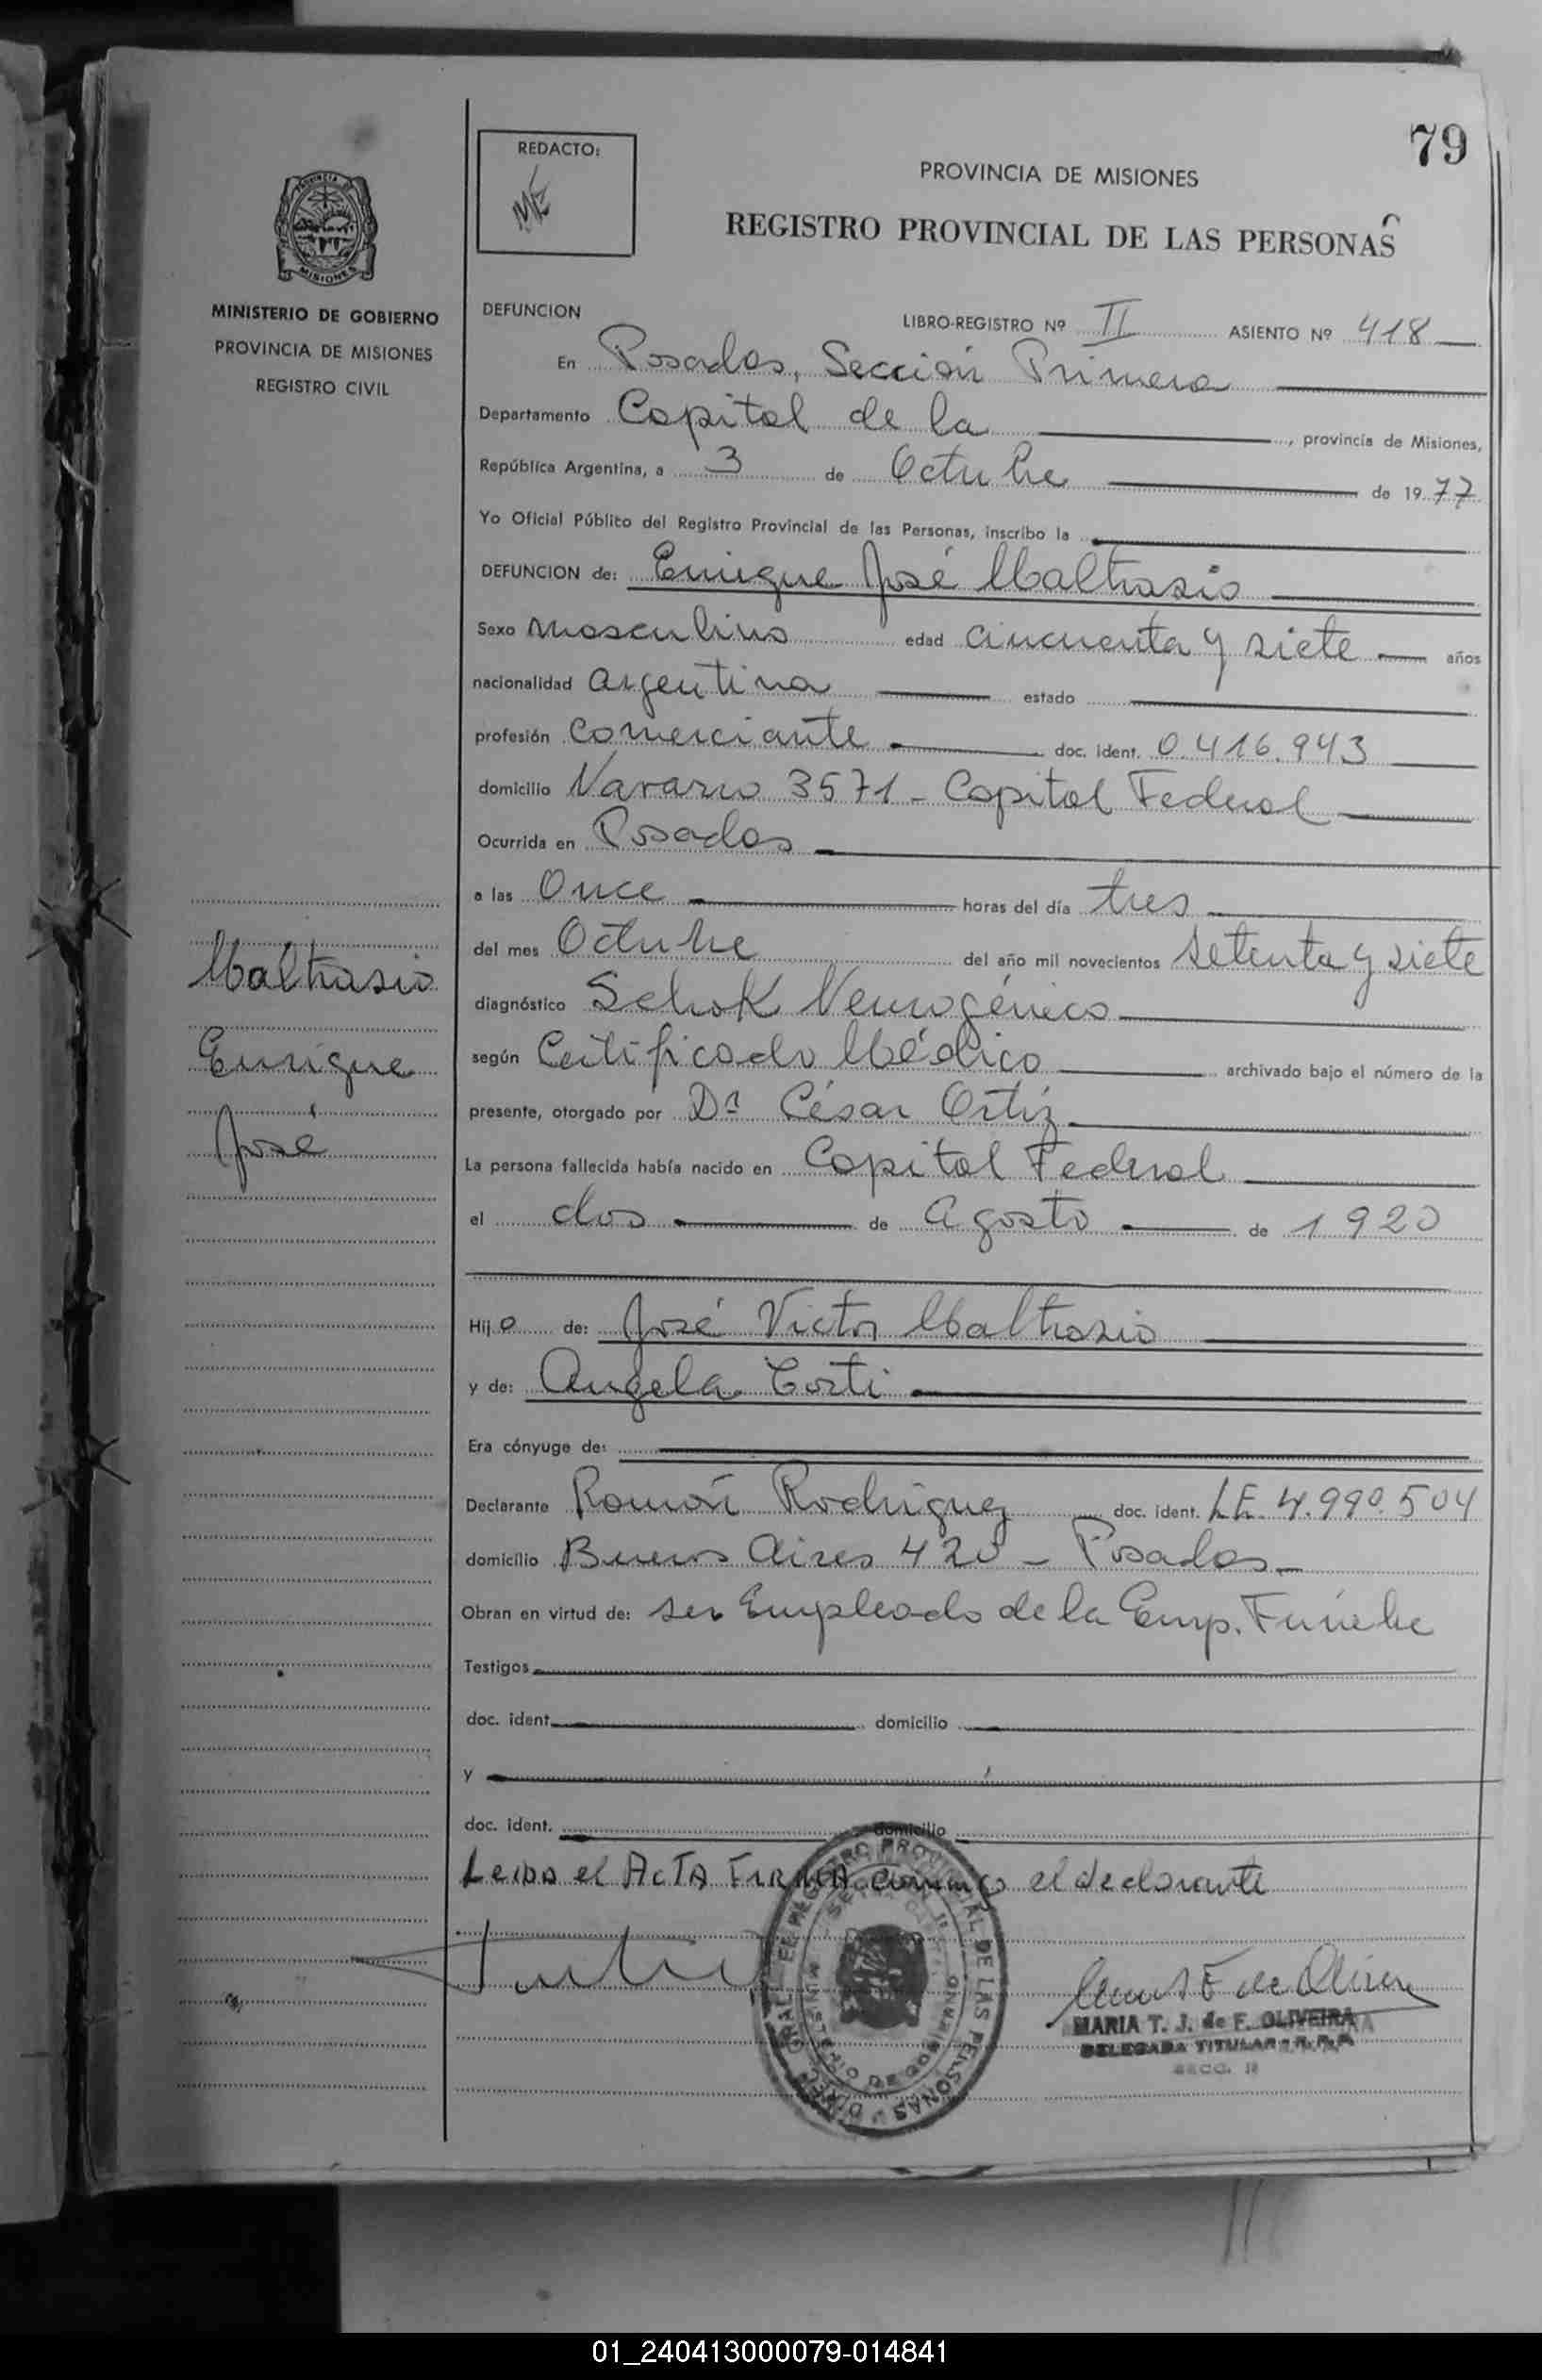 79
REDACTO:
PROVINCIA DE MISIONES
REGISTRO PROVINCIAL DE LAS PERSONAS
MISIONES
MINISTERIO DE GOBIERNO
PROVINCIA DE MISIONES
REGISTRO CIVIL
DEFUNCION
LIBRO-REGISTRO Nº II ASIENTO Nº 418
En Posadas, Sección Primera
Departamento Capital de la , provincia de Misiones,
República Argentina, a 3 de Octubre de 1977
Yo Oficial Público del Registro Provincial de las Personas, inscribo la
DEFUNCION de: Enrique José Malhasio
Sexo masculino edad cincuenta y siete años
nacionalidad argentina estado
profesión Comerciante doc. ident. 0.416.943
domicilio Navarro 3571 - Capital Federal
Ocurrida en Posadas
a las Once horas del día tres
del mes Octubre del año mil novecientos setenta y siete
diagnóstico Schok Neurogénico
según Certificado Médico archivado bajo el número de la
presente, otorgado por Dr César Ortíz
La persona fallecida había nacido en Capital Federal
el dos de Agosto de 1920
Hijo de: José Victor Malhasio
y de: Angela Corti
Era cónyuge de:
Declarante Ramón Rodriguez doc. ident. L.E. 4.990.504
domicilio Buenos Aires 420 - Posadas
Obran en virtud de: ser Empleado de la Emp. Fúnebre
Testigos
doc. ident. domicilio
y
doc. ident. domicilio
Leida el ActA FIRMA conmigo el declarante
Malhasio
Enrique
José
MARIA T. J. de F. OLIVEIRA
DELEGADA TITULAR R.P.P.
SECC. 1ª
01_240413000079-014841